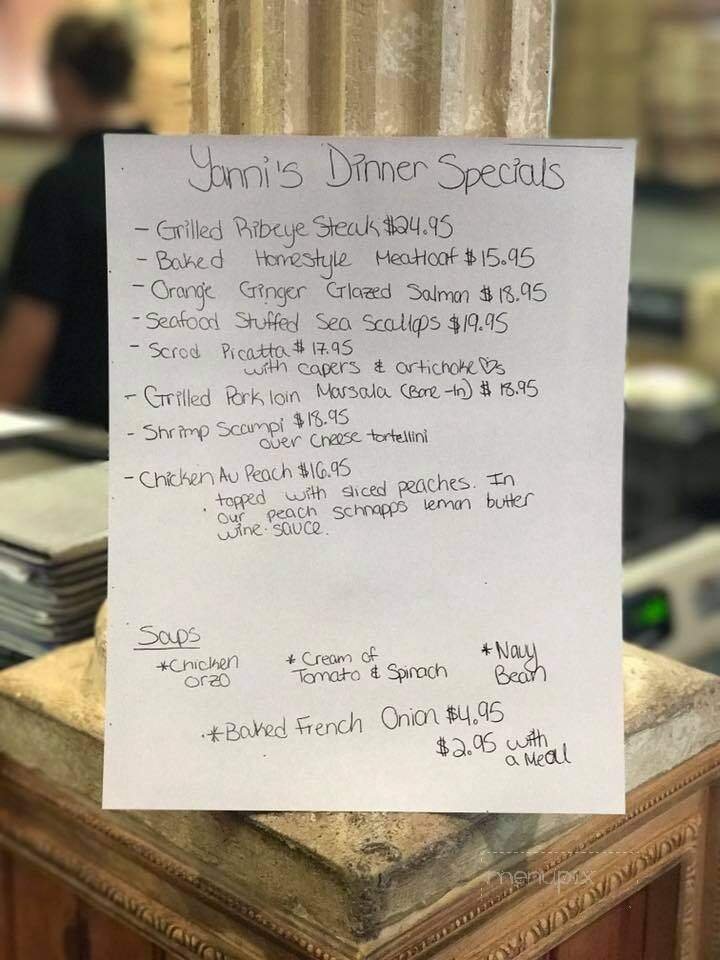 Yanni's Dinner Specials
- Grilled Ribeye Steak $24.95
- Baked Homestyle Meatloaf $15.95
- Orange Ginger Glazed Salmon $18.95
- Seafood Stuffed Sea Scallops $19.95
- Scrod Picatta $17.95
with capers & artichoke ♡s
- Grilled Pork loin Marsala (Bone-In) $18.95
- Shrimp Scampi $18.95
over cheese tortellini
- Chicken Au Peach $16.95
topped with sliced peaches. In
our peach schnapps lemon butter
wine sauce.
Soups
*Chicken Orzo
* Cream of Tomato & Spinach
* Navy Bean
* Baked French Onion $4.95
$2.95 with
a Meal
menupix